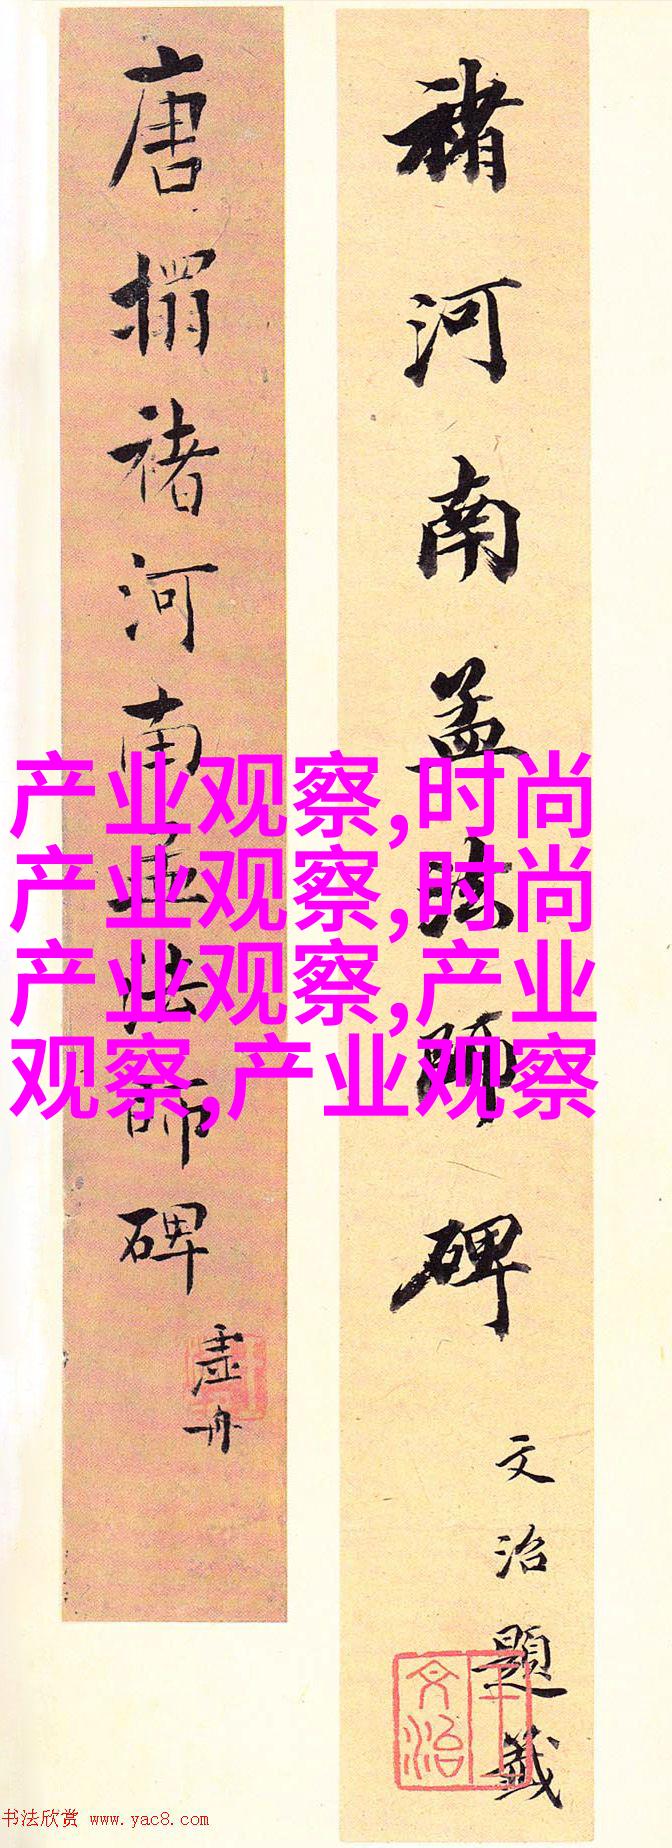 褚河南孟法師碑
文治題籤
王文治
唐搨褚河南孟法師碑
虛舟
产业观察,时尚
产业观察,时尚
产业观察,产业
观察,产业观察
书法欣赏 www.yac8.com